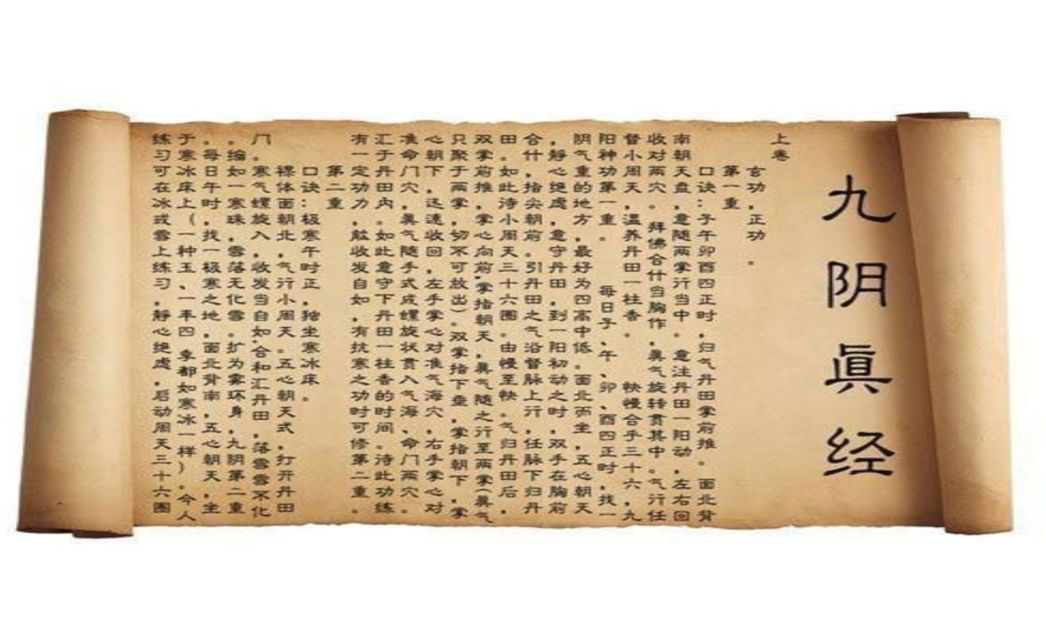 九阴眞经
上卷
玄功，正功。
第一重
口诀：子午卯酉四正时，归气丹田掌前推。面北背
南朝天盘，意随两掌行当中。意注丹田一阳动，左右回
收对两穴。拜佛合什当胸作，真气旋转贯其中。气行任
督小周天，温养丹田一柱香。快慢合乎三十六，九
阳神功第一重。每日子、午、卯、酉四正时，找一
阴气重的地方，最好为四高中低。面北而坐，五心朝天
，静心绝虑，意守丹田，到一阳初动之时，双手在胸前
合什，指尖朝前。引丹田之气沿督脉上行，任脉下归丹
田。如此待小周天三十六圈。由慢至快。气归丹田后，
双掌前推，掌心向前，掌指朝天，真气随之行至两掌（真气
只聚于两掌，切不可放出）。双掌指下垂，掌指朝下，掌
心朝下，迅速收回，左手掌心对准气海穴，右手掌心对
准命门穴，真气随手式成螺旋状贯入气海、命门两穴。
汇于丹田内。如此意守下丹田一柱香的时间。待此功练
有一定功力，鼓收发自如，有抗寒之功时可修第二重。
第二重
口诀：极寒午时正，独坐寒冰床。
裸体面朝北，气行小周天。五心朝天式，打开丹田
门。寒气螺旋入，收发当自如，合和汇丹田，落雪雪不化
。缩如一寒珠，雪落无化雪。扩为雾环身，九阴第二重
。每日午时，找一极寒之地，面北背南，五心朝天，坐
于寒冰床上（一种玉、一年四季都如寒冰一样）。今人
练习可在冰或雪上练习，静心绝虑，启动周天三十六圈